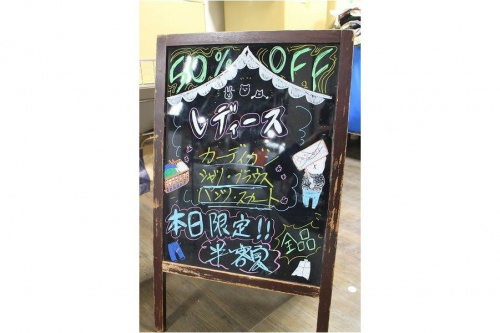 50% OFF
レディース
カーディガン
シャツ・ブラウス
パンツ・スカート
本日限定!!
半額
全品